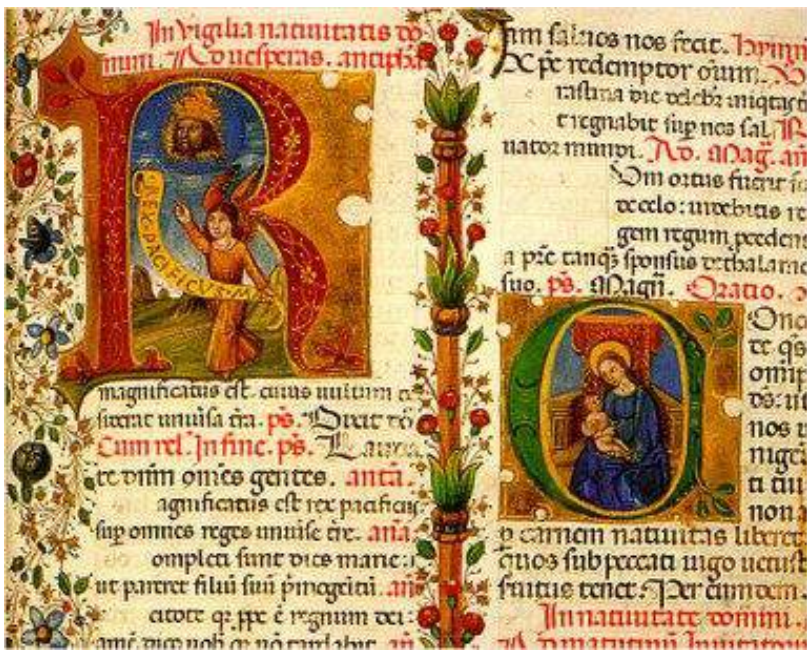 In vigilia nativitatis do
mini. Ad vesperas. antipha
R
REX PACIFICUS
magnificatus est. cuius vultum
universa tra. ps. Dixit
Cum rel. In fine. ps. Lauda
te dnm omes gentes. anta.
agnificatus est rex pacificus
sup omnes reges universe tre. ana
ompleti sunt dies marie
ut pareret filiu suu pmogenitu. an
citote qz ppe e regnum dei
ame dico vob qz no tardabit. an
nim salvos nos fecit. Hymn
Xpe redemptor oium.
rastina die delebit iniqtas
t regnabit sup nos sal
uator mundi. Ad. Mag. an
um ortus fuerit
de celo: videbitis re
gem regum proceden
a pre tanqz sponsus de thalamo
suo. ps. Magn. Oratio.
Conc
de qs
omip
ds: ut
nos
nige
ti tui
non
p carnem nativitas liberet
quos sub peccati iugo vetust
servitus tenet. Per eundem.
In nativitate domini.
Ad matutinu Invitator